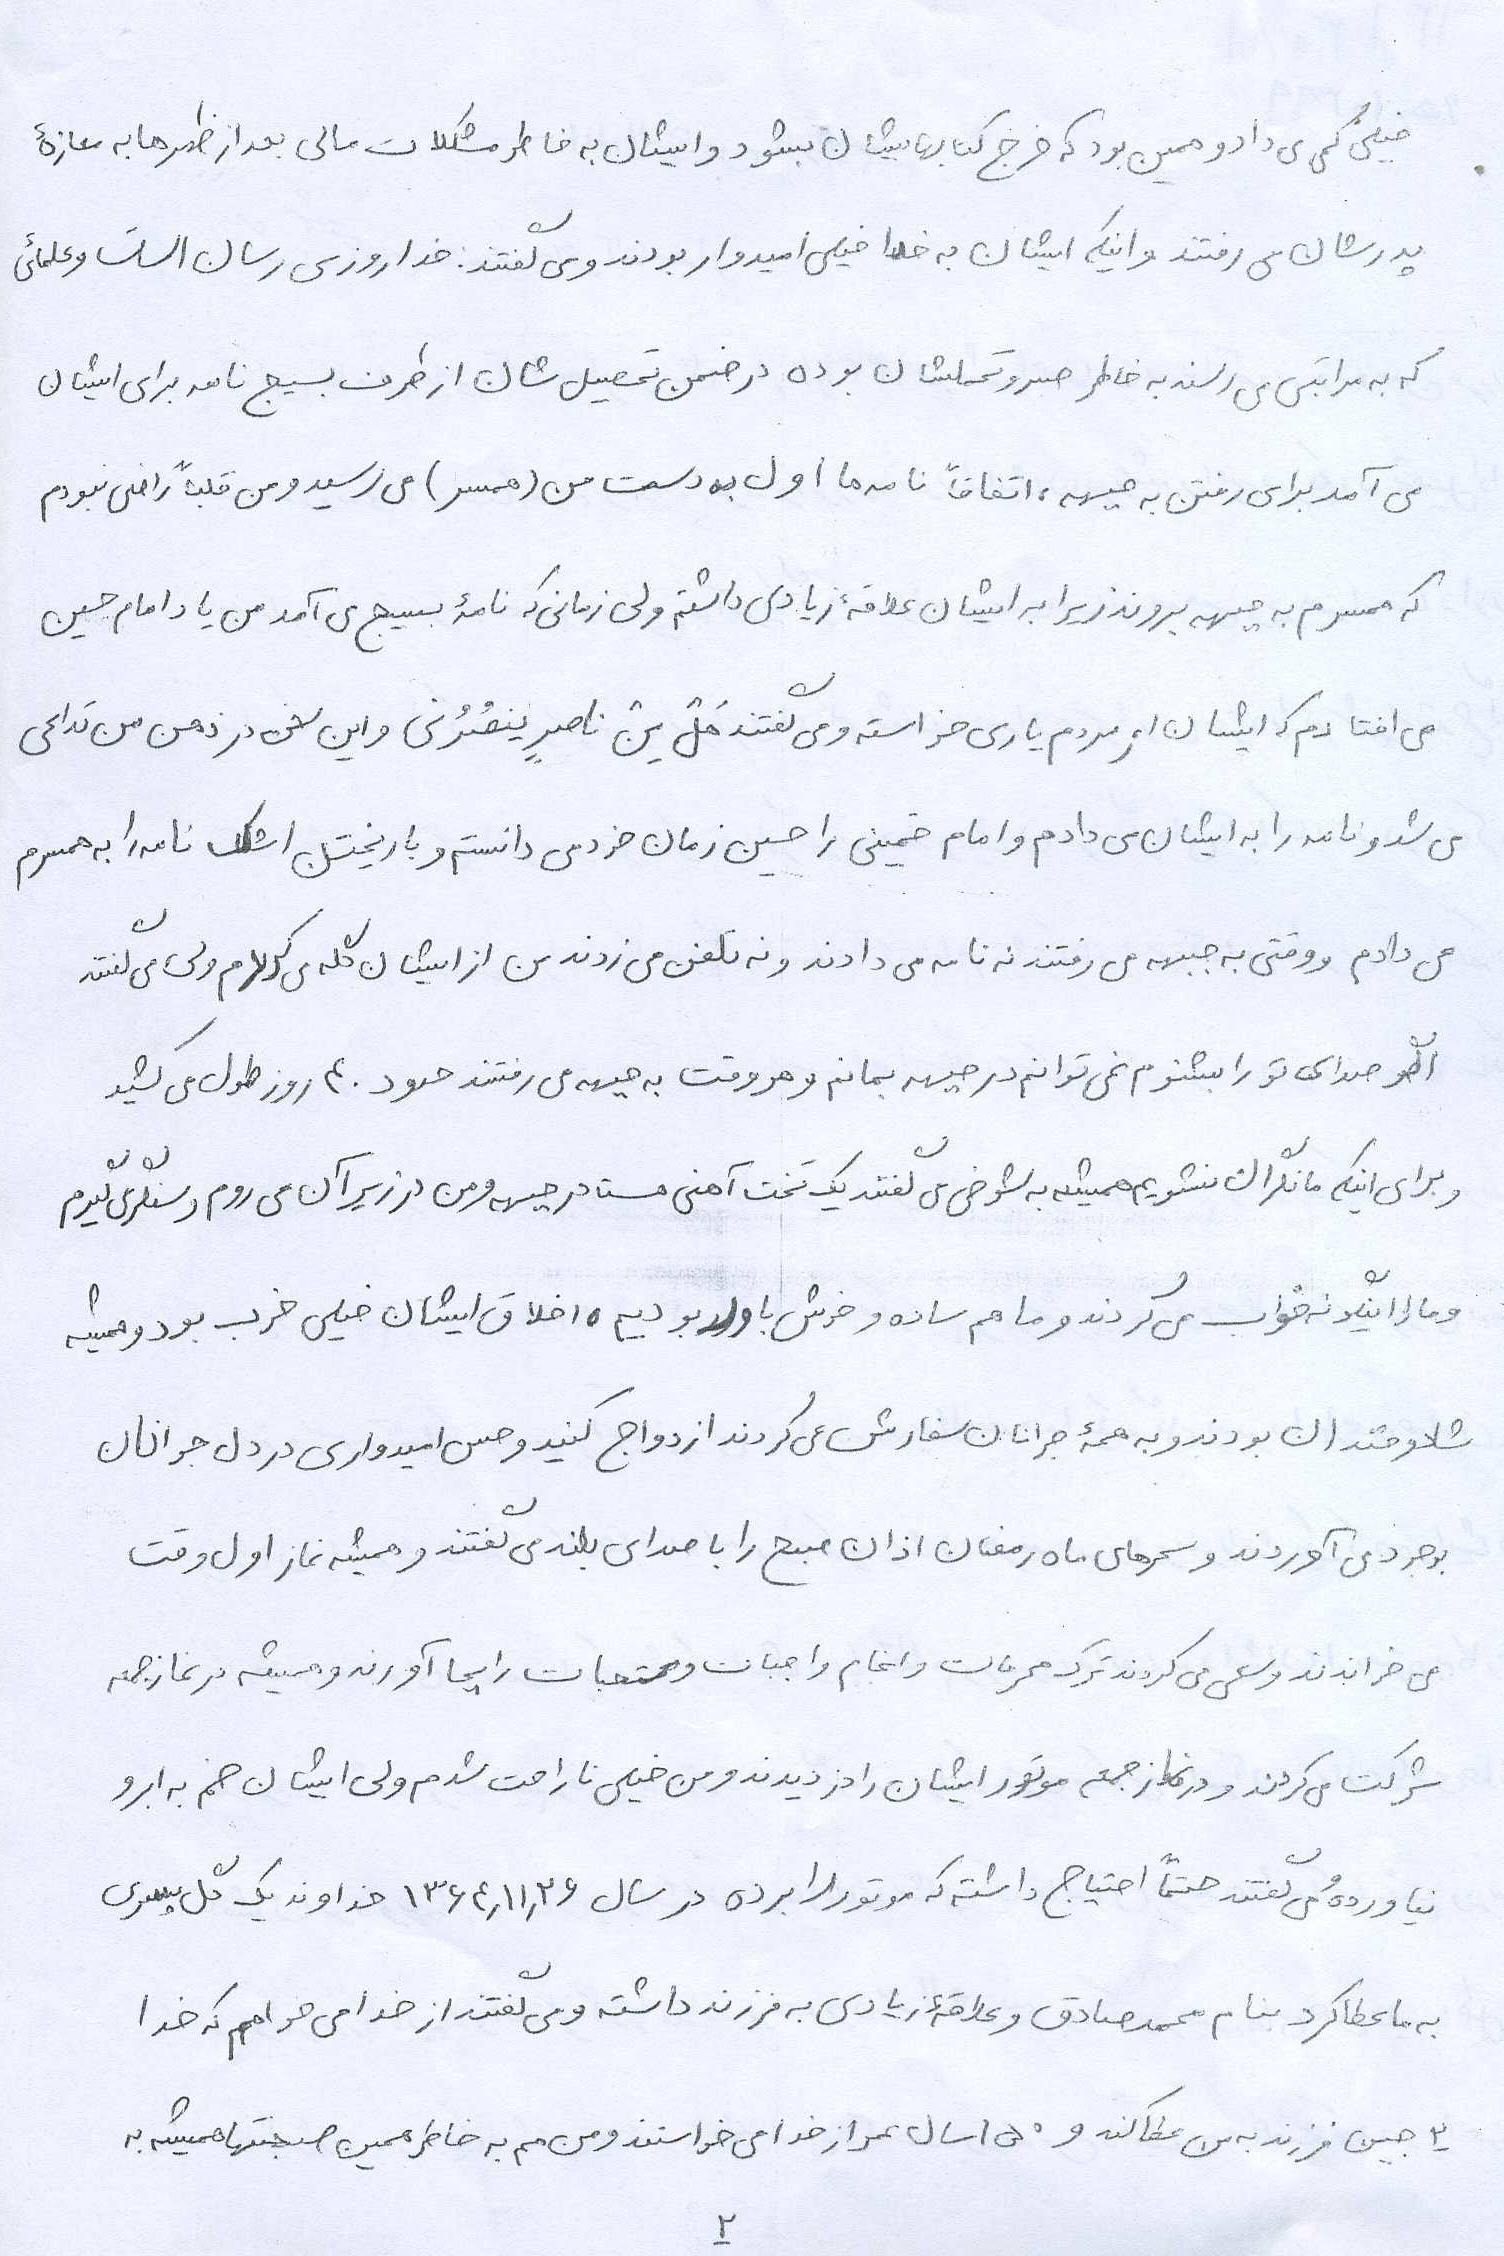 خیلی کمی می داد و همین بود که خرج کتابهایشان بشود و ایشان به خاطر مشکلات مالی بعد از ظهرها به مغازهٔ
پدرشان می رفتند و اینکه ایشان به خدا خیلی امیدوار بودند و می گفتند: خدا روزی رسان است و علمائی
که به مراتبی می رسند به خاطر صبر و تحملشان بوده در ضمن تحصیل شان از طرف بسیج نامه برای ایشان
می آمد برای رفتن به جبهه، اتفاقاً نامه ها اول به دست من (همسر) می رسید و من قلباً راضی نبودم
که همسرم به جبهه بروند زیرا به ایشان علاقهٔ زیادی داشته ولی زمانی که نامهٔ بسیج می آمد من یاد امام حسین
می افتادم که ایشان از مردم یاری خواسته و می گفتند هَلْ مِنْ ناصرٍ ینصُرُنی و این سخن در ذهن من تداعی
می شد و نامه را به ایشان می دادم و امام خمینی را حسین زمان خود می دانستم و با ریختن اشک نامه را به همسرم
می دادم و وقتی به جبهه می رفتند نه نامه می دادند و نه تلفن می زدند من از ایشان گله می کردم ولی می گفتند
اگر صدای تو را بشنوم نمی توانم در جبهه بمانم و هر وقت به جبهه می رفتند حدود ۴۰ روز طول می کشید
و برای اینکه ما نگران نشویم همیشه به شوخی می گفتند یک تخت آهنی هست در جبهه و من در زیر آن می روم و سنگر می گیرم
و ما را اینگونه خواب می کردند و ما هم ساده و خوش باور بودیم ه اخلاق ایشان خیلی خوب بود و همیشه
شاد و خندان بودند و به همهٔ جوانان سفارش می کردند ازدواج کنید و حس امیدواری در دل جوانان
بوجود می آوردند و سحرهای ماه رمضان اذان صبح را با صدای بلند می گفتند و همیشه نماز اول وقت
می خواندند و سعی می کردند ترک محرمات و انجام واجبات و مستحبات را بجا آورند و همیشه در نماز جمعه
شرکت می کردند و در نماز جمعه موتور ایشان را دزدیدند و من خیلی ناراحت شدم ولی ایشان خم به ابرو
نیاورده و می گفتند حتماً احتیاج داشته که موتور را برده در سال ۱۳۶۴٫۱۱٫۲۶ خداوند یک گل پسری
به ما عطا کرد بنام محمد صادق و علاقهٔ زیادی به فرزند داشته و می گفتند از خدا می خواهم که خدا
۳ جین فرزند به من عطا کند و ۱۵۰ سال عمر از خدا می خواستند و من هم به خاطر همین صحبتها همیشه به
۲